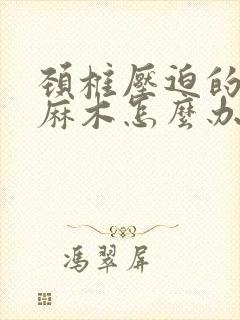 頸椎壓迫的
麻木怎麼办
馮翠屏